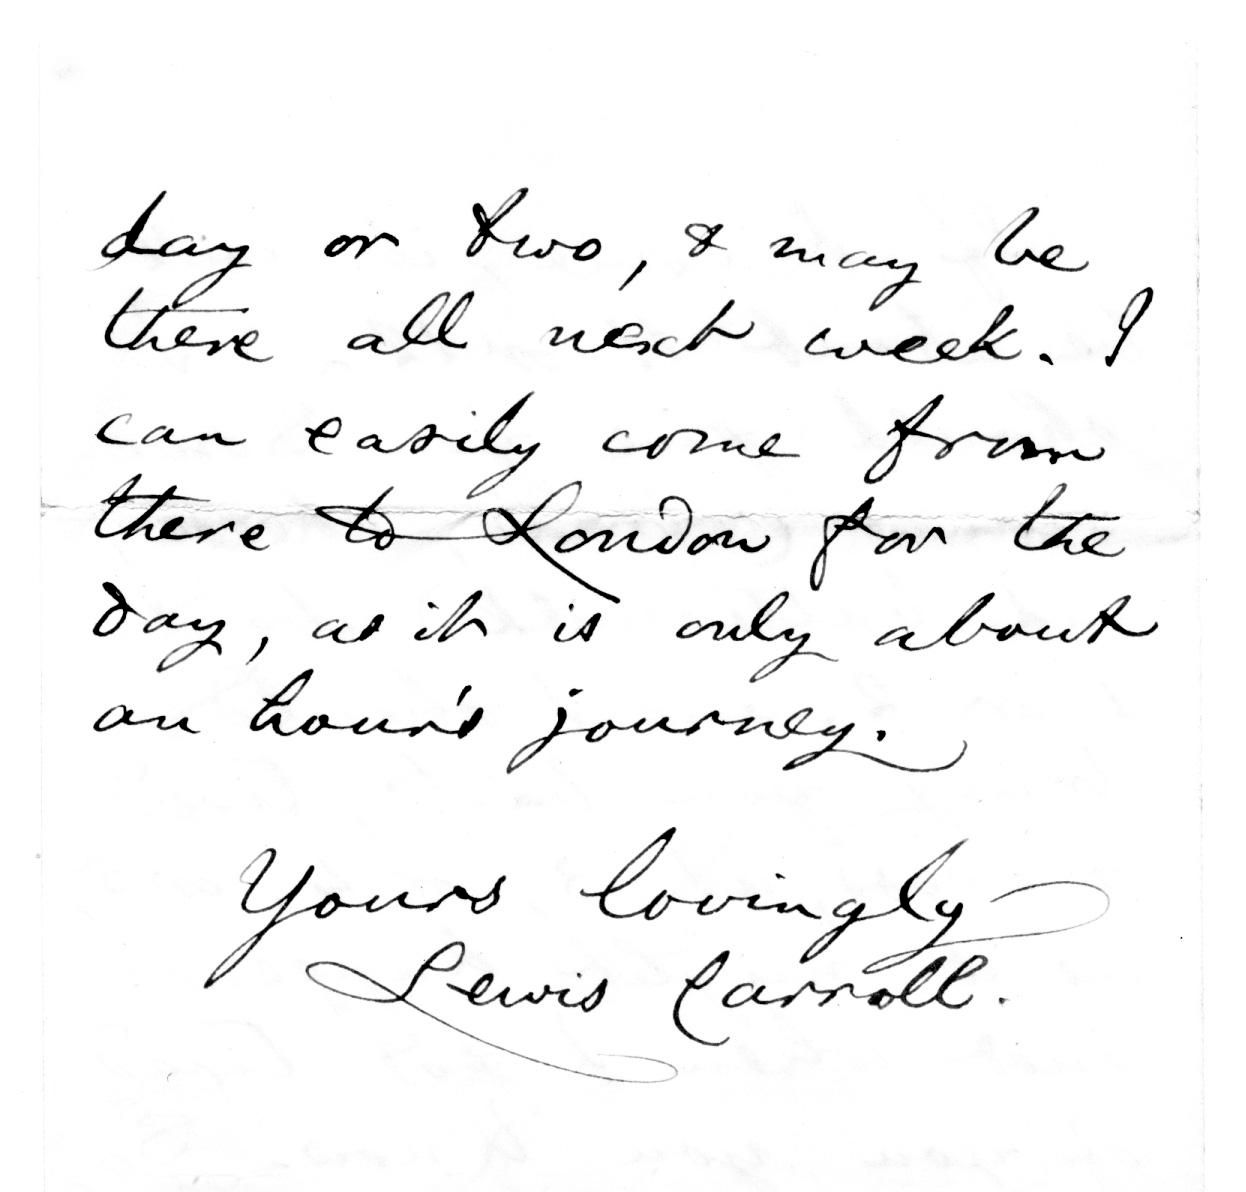 day or two, & may be
there all next week. I
can easily come from
there to London for the
day, as it is only about
an hour's journey.
Yours lovingly
Lewis Carroll.